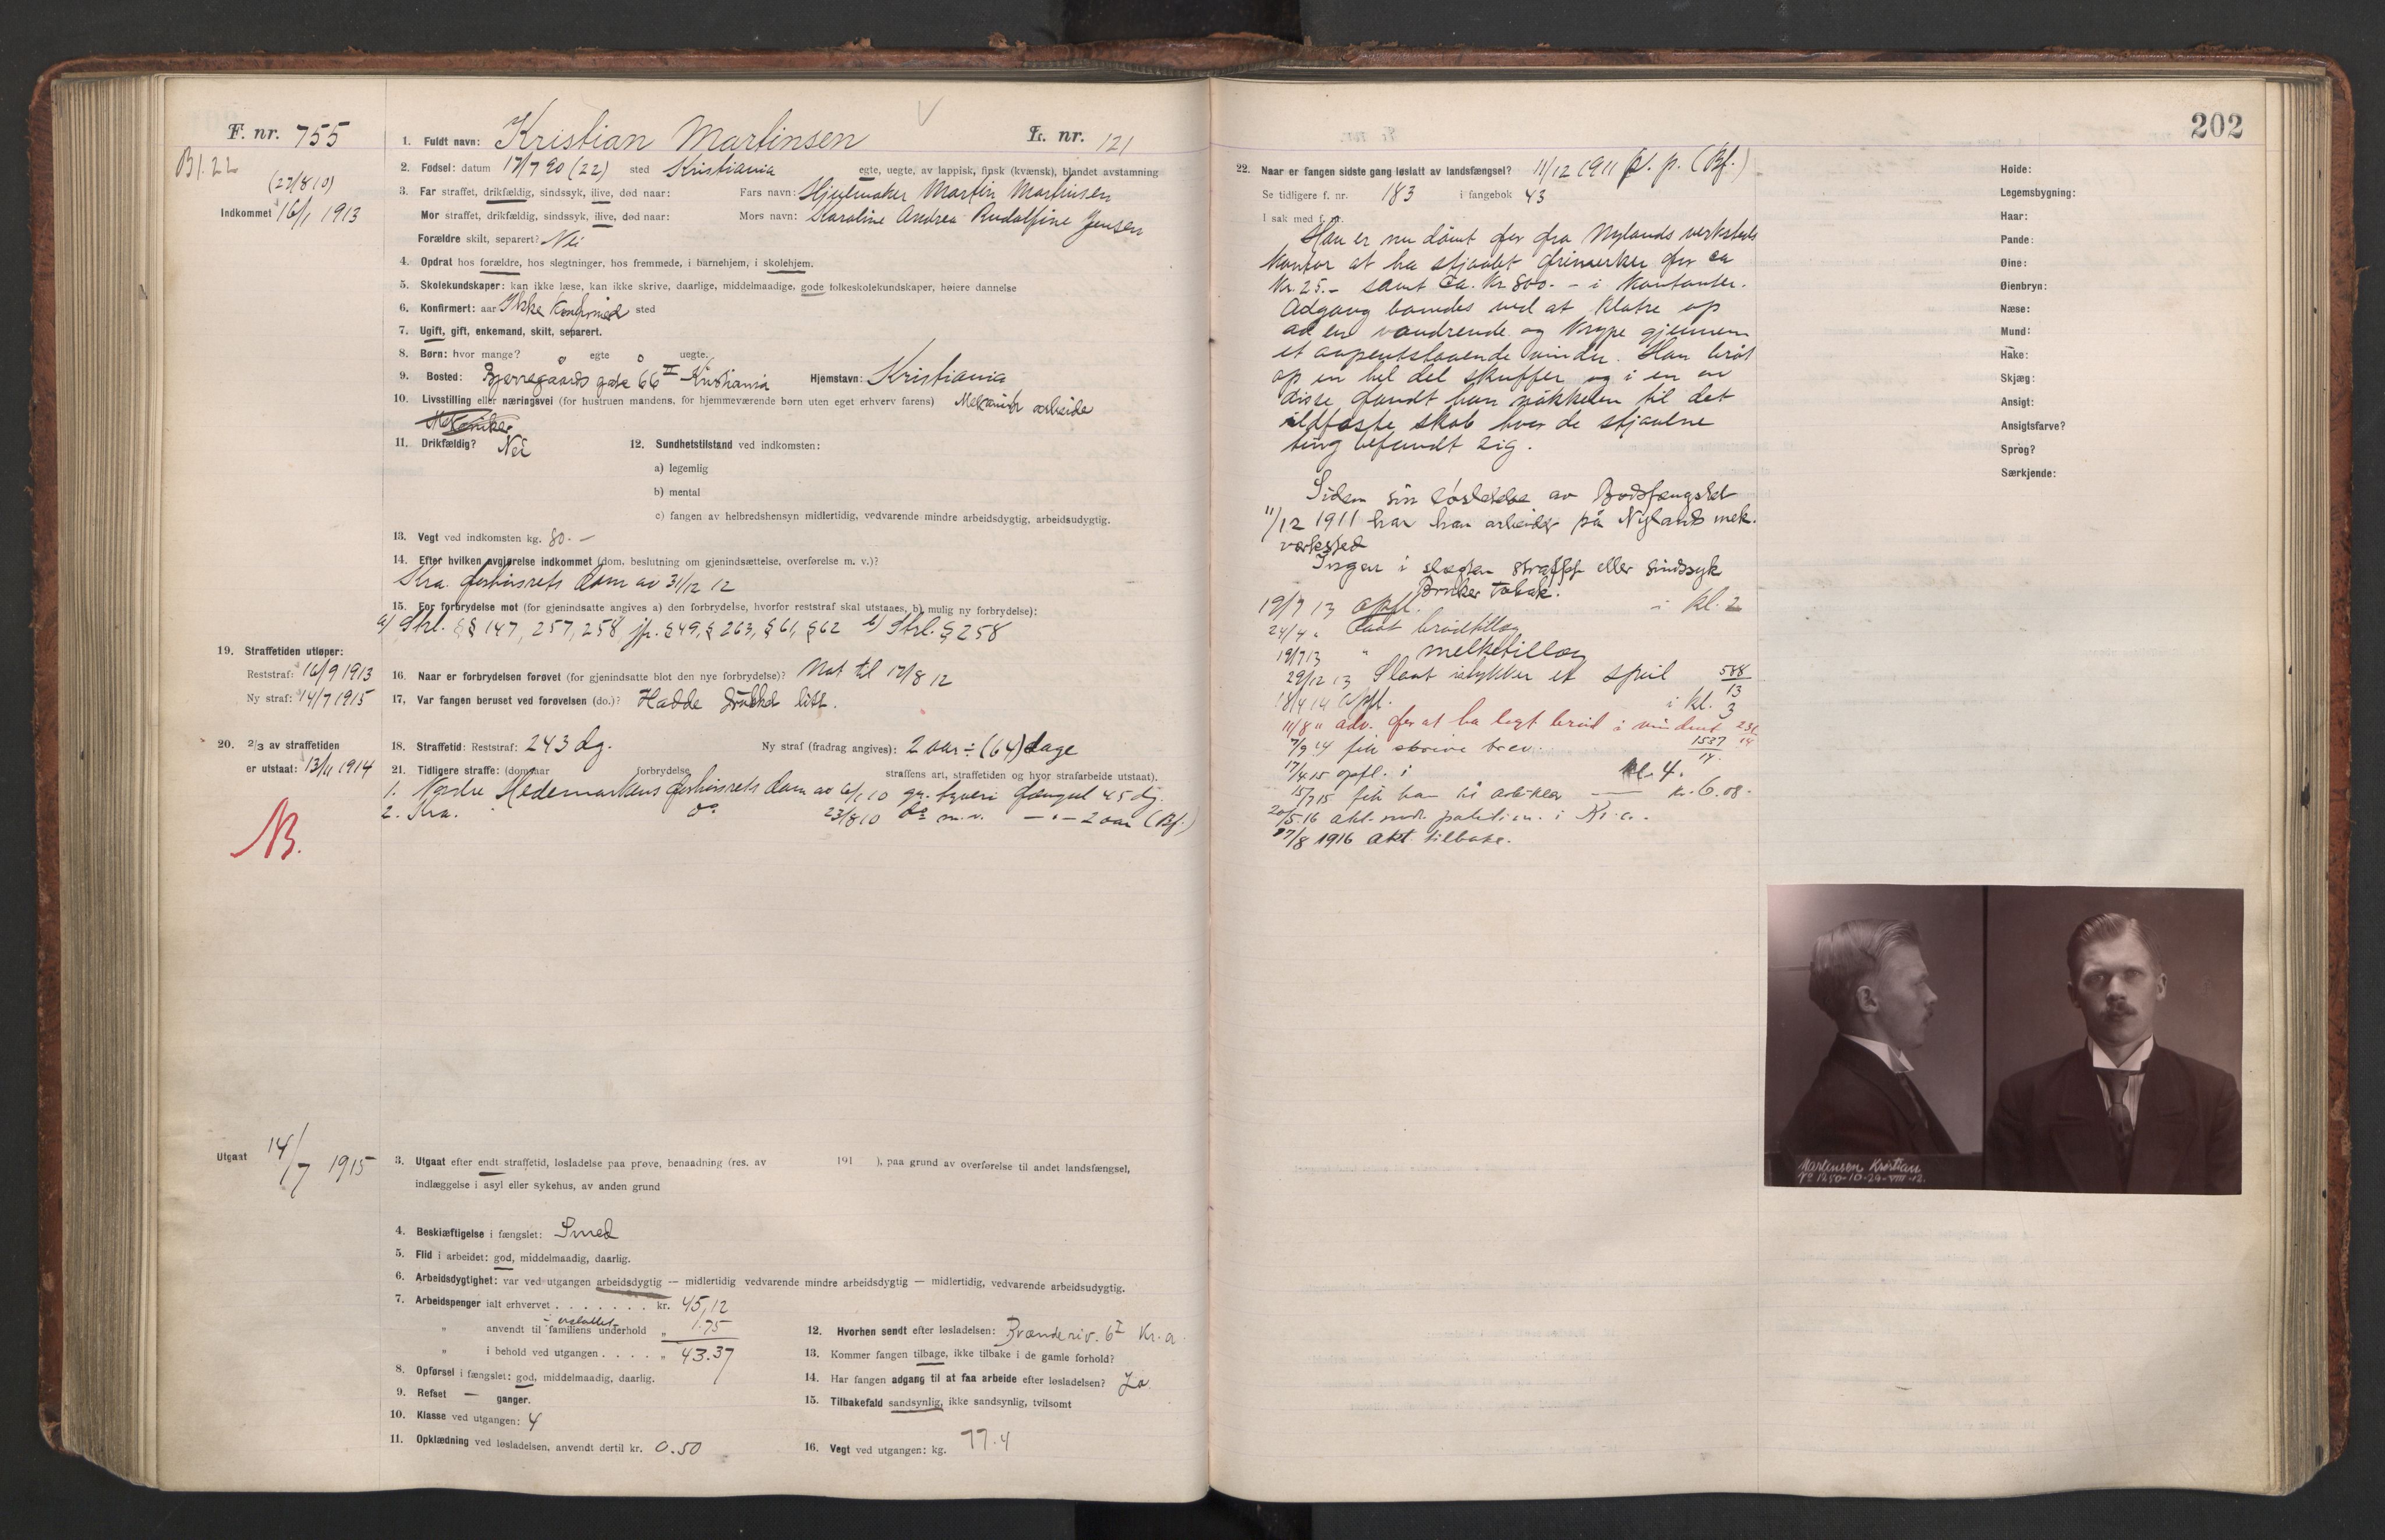 F. nr. 755
Bl. 22
(27/8 10)
Indkommet 16/1 1913
1. Fuldt navn: Kristian Martinsen L. nr. 121
2. Fødsel: datum 17/7 90 (22) sted Kristiania egte, uegte, av lappisk, finsk (kvænsk), blandet avstamning
3. Far straffet, drikfældig, sindssyk, ilive, død naar: Fars navn: Hjulmaker Martin Martinsen
Mor straffet, drikfældig, sindssyk, ilive, død naar: Mors navn: Karoline Andrea Rudolfine Jensen
Forældre skilt, separert? Nei
4. Opdrat hos forældre, hos slegtninger, hos fremmede, i barnehjem, i skolehjem.
5. Skolekundskaper: kan ikke læse, kan ikke skrive, daarlige, middelmaadige, gode folkeskolekundskaper, høiere dannelse
6. Konfirmert: aar Ikke Konfirmed sted
7. Ugift, gift, enkemand, skilt, separert.
8. Børn: hvor mange? 0 egte 0 uegte.
9. Bosted: Bjerregaards gate 66 II Kristiania Hjemstavn: Kristiania
10. Livsstilling eller næringsvei (for hustruen mandens, for hjemmeværende børn uten eget erhverv farens) Mekanisk arbeide
11. Drikfældig? Nei 12. Sundhetstilstand ved indkomsten:
a) legemlig
b) mental
c) fangen av helbredshensyn midlertidig, vedvarende mindre arbeidsdygtig, arbeidsudygtig.
13. Vegt ved indkomsten kg. 80. —
14. Efter hvilken avgjørelse indkommet (dom. beslutning om gjenindsættelse, overførelse m. v.)?
Kra. forhørsrets dom av 31/12 12
15. For forbrydelse mot (for gjenindsatte angives a) den forbrydelse, hvorfor reststraf skal utstaaes, b) mulig ny forbrydelse):
a) Strl. §§ 147, 257, 258, jfr. § 49, § 263, § 61, § 62 b) Strl. § 258
19. Straffetiden utløper:
Reststraf: 16/9 1913
Ny straf: 14/7 1915
16. Naar er forbrydelsen forøvet (for gjenindsatte blot den nye forbrydelse)? Nat til 17/8 12
17. Var fangen beruset ved forøvelsen (do.)? Hadde drukket litt.
20. 2/3 av straffetiden
er utstaat: 13/11 1914
18. Straffetid: Reststraf: 243 dg. Ny straf (fradrag angives): 2 aar ÷ (64) dage
21. Tidligere straffe: (dom aar forbrydelse straffens art, straffetiden og hvor strafarbeide utstaat).
1. Nordre Hedemarkens forhørsrets dom av 6/1 10 gr. tyveri fængsel 45 dg.
2. Kra. do 23/8 10 do m.v. — " — 2 aar (Bf.)
NB.
Utgaat 14/7 1915
3. Utgaat efter endt straffetid, løsladelse paa prøve, benaadning (res. av 191 ), paa grund av overførelse til andet landsfængsel,
indlæggelse i asyl eller sykehus, av anden grund
4. Beskjæftigelse i fængslet: Smed
5. Flid i arbeidet: god, middelmaadig, daarlig.
6. Arbeidsdygtighet: var ved utgangen arbeidsdygtig — midlertidig vedvarende mindre arbeidsdygtig — midlertidig, vedvarende arbeidsudygtig.
7. Arbeidspenger ialt erhvervet . . . . . . . kr. 45,12
" anvendt til familiens underhold " 1.75
" i behold ved utgangen . . . . " 43.37
8. Opførsel i fængslet: god, middelmaadig, daarlig.
9. Refset — ganger.
10. Klasse ved utgangen: 4
11. Opklædning ved løsladelsen, anvendt dertil kr. 0.50
12. Hvorhen sendt efter løsladelsen: Brænderiv. 6 I Kr.a.
13. Kommer fangen tilbage, ikke tilbake i de gamle forhold?
14. Har fangen adgang til at faa arbeide efter løsladelsen? Ja
15. Tilbakefald sandsynlig, ikke sandsynlig, tvilsomt
16. Vegt ved utgangen: kg. 77.4
202
22. Naar er fangen sidste gang løslatt av landsfængsel? 11/12 1911 p. p. (Bf.)
Se tidligere f. nr. 183 i fangebok 43
I sak med f. nr.
Han er nu dømt for fra Nylands verksteds
kontor at ha stjaalet frimerker for ca
Kr. 25.- samt ca. Kr. 800.- i kontanter.
Adgang banedes ved at klatre op
ad en vandrende og krype gjennem
et aapentstaaende vindu. Han brøt
op en hel del skuffer og i en av
disse fandt han nøkkelen til det
ildfaste skab hvor de stjaalne
ting befandt sig.
Siden sin løsladelse av Bodsfængslet
11/12 1911 har han arbeidet på Nylands mek.
værksted
Ingen i slegten straffet eller sindssyk
Bruker tobak.
19/7 13 opfl. i kl. 2
24/4 " Faat brødtillæg
19/7 13 " melketillæg
29/12 13 Slaat istykker et speil 588/13
18/4 14 Opfl. i kl. 3
11/8 " adv. for at ha lagt brød i vinduet 231/14
7/9 14 fik skrive brev. 1537/14
17/4 15 opfl. i kl. 4.
15/7 15 fik han kr. 6.08
20/5 16 akt. i Kr.a.
17/8 1916 akt. tilbake.
Høide:
Legemsbygning:
Haar:
Pande:
Øine:
Øienbryn:
Næse:
Mund:
Hake:
Skjæg:
Ansigt:
Ansigtsfarve?
Sprog?
Særkjende:
Martinsen Kristian
No 1250-10-29-VIII-12.